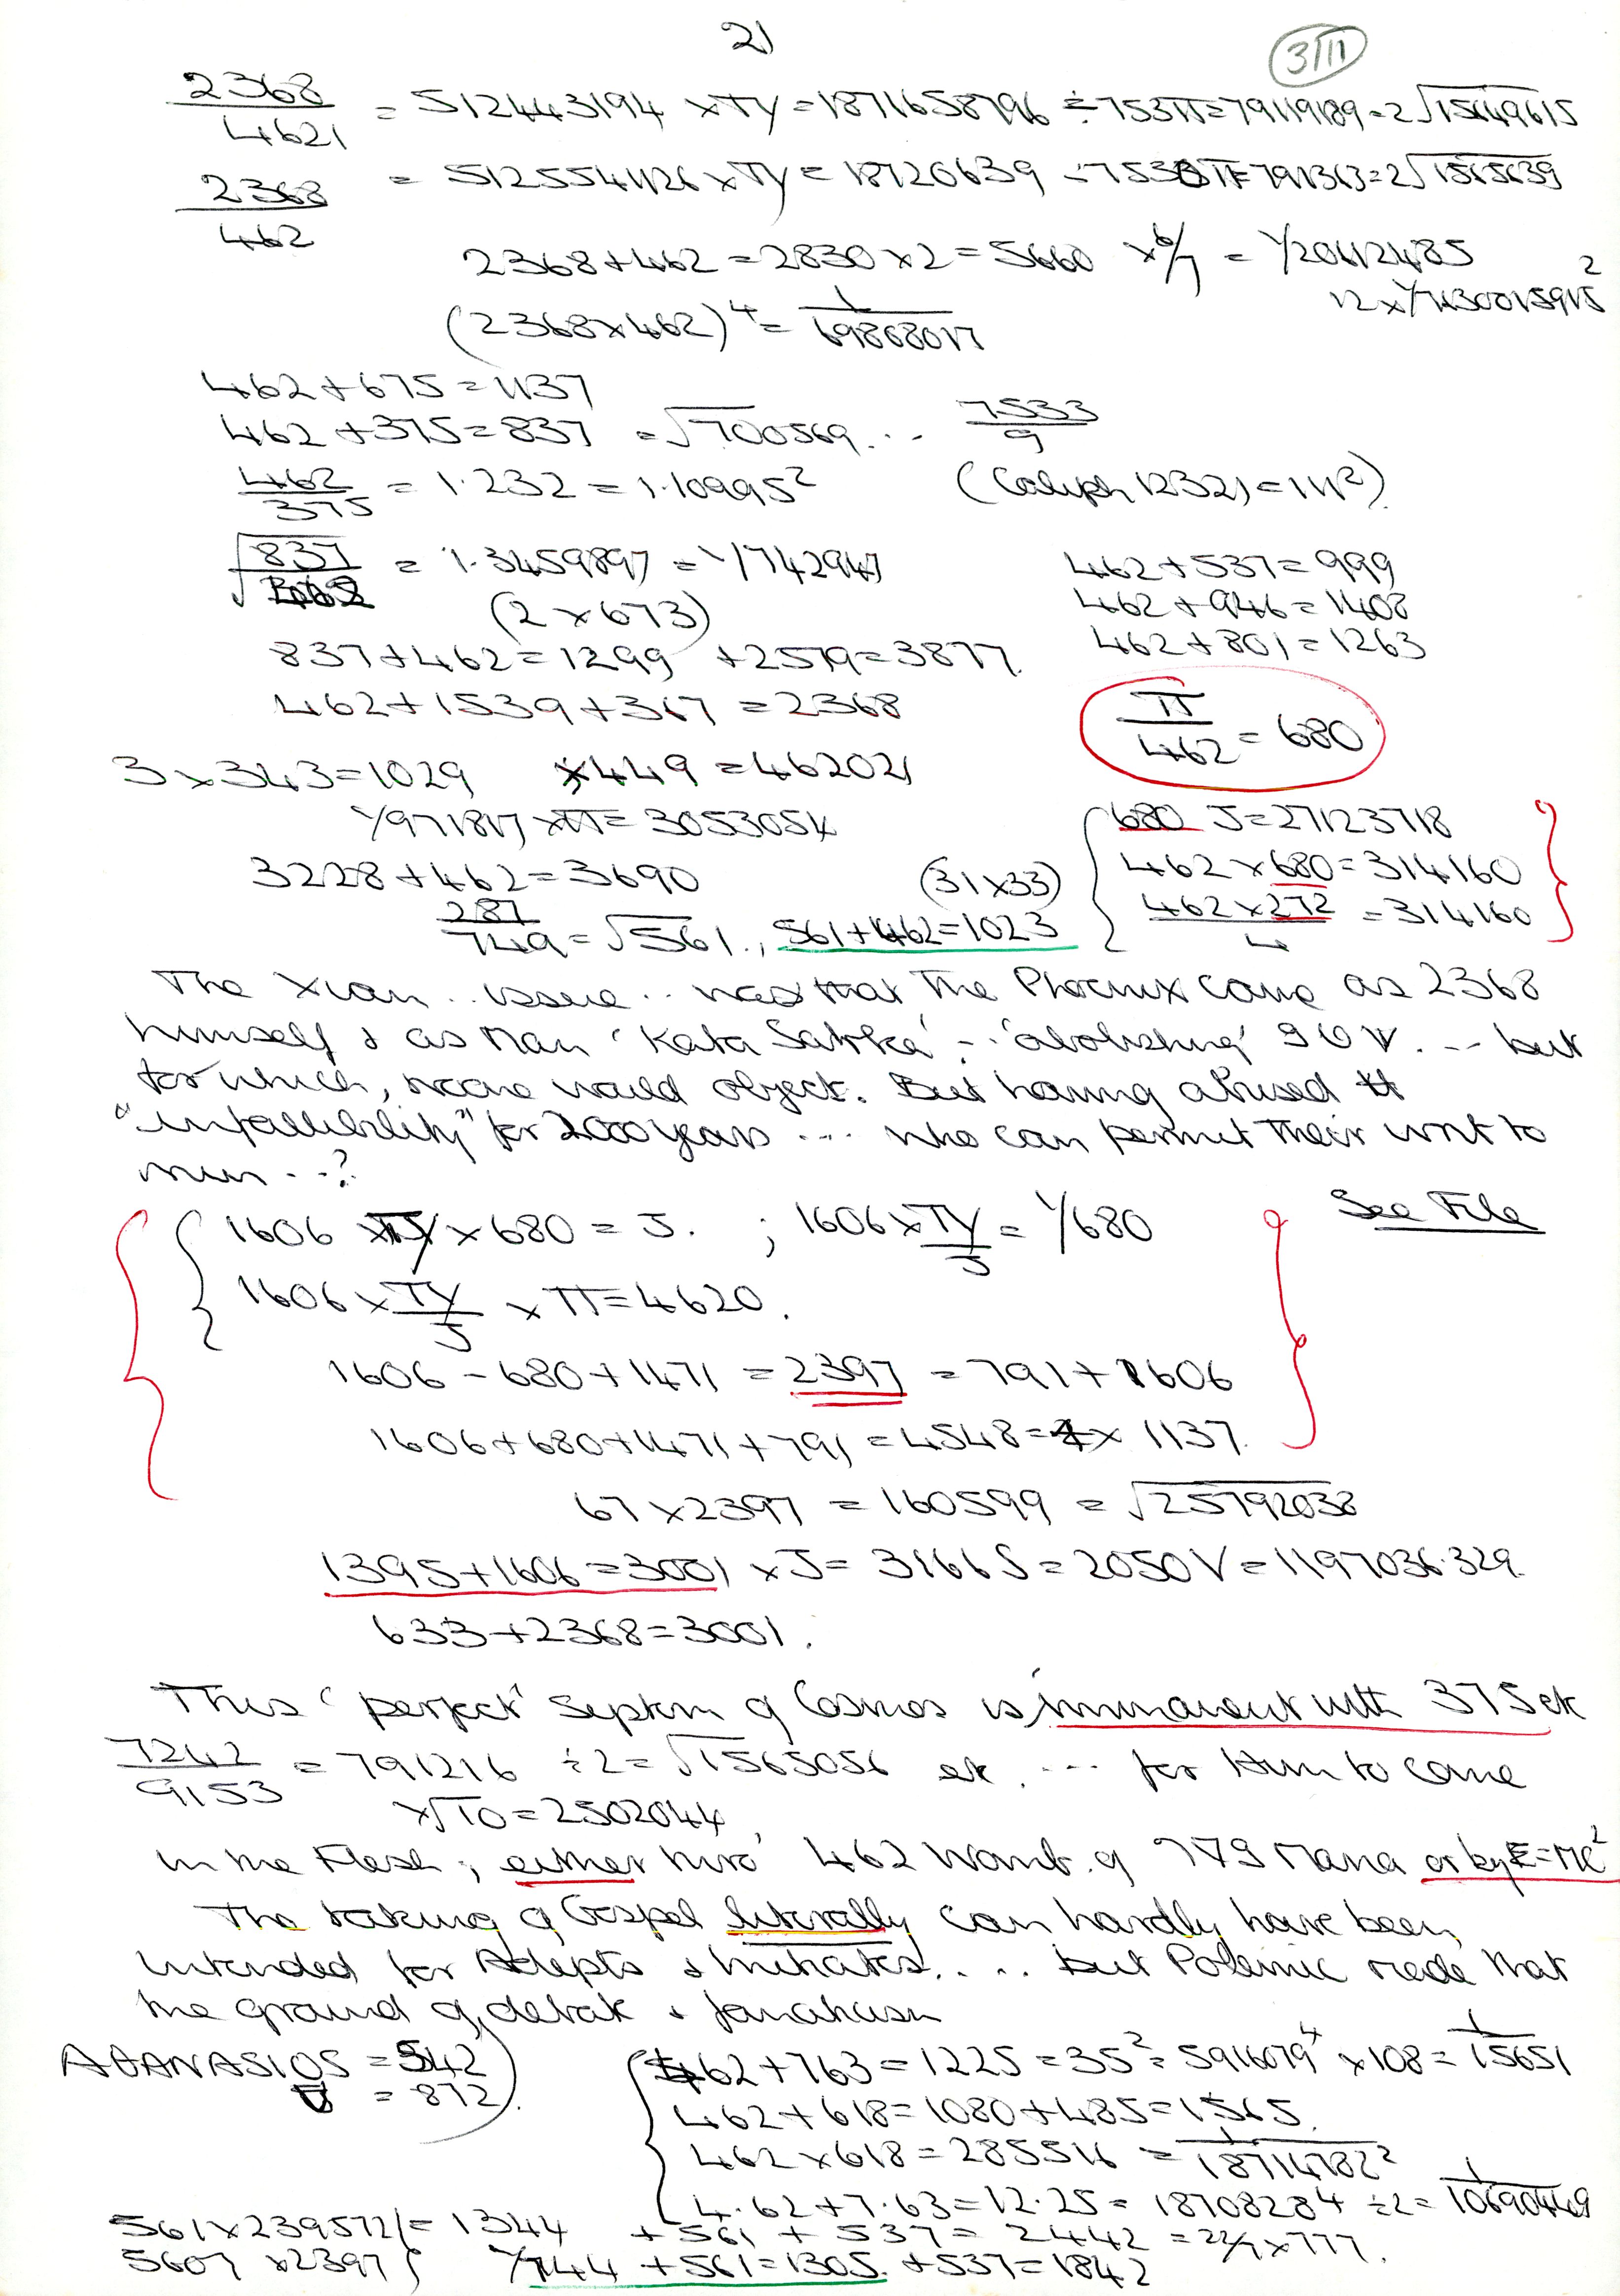 2)
3/11
2368/4621 = 512443194 x TY = 1871658796 ÷ 753π = 79119189 = 2√15649615
2368/462 = 5125541126 x TY = 18720639 ÷ 753π = 791363 = 2√1565639
2368 + 462 = 2830 x 2 = 5660 x 6/7 = 1/206112485
(2368 x 462)⁴ = 1/69868017
462 + 675 = 1137
462 + 375 = 837 = √700569 .. 7533/9
462/375 = 1.232 = 1.10995² (Caliph 1232) = 111²)
√837/√462 = 1.3459897 = 1/742947
462 + 537 = 999
(2 x 673)
462 + 946 = 1408
837 + 462 = 1299 + 2579 = 3877
462 + 801 = 1263
462 + 1539 + 367 = 2368
π/462 = 680
3 x 343 = 1029 x 449 = 462021
1/971817 x π = 3053054
680 J = 27123718
3228 + 462 = 3690
(31 x 33)
462 x 680 = 314160
287/749 = √561., 561 + 462 = 1023
462 x 272/4 = 314160
The Xian .. issue .. was that The Phoenix came as 2368
himself & as Man 'Kata Sarka' .. 'abolishing' 9 O V. .. but
for which, none would object. But having abused tt
"infallibility" for 2000 years ... who can permit their writ to
run ..?
See File
1606 x TY x 680 = J. ; 1606 x TY/J = 1/680
1606 x TY/J x π = 4620.
1606 - 680 + 1471 = 2397 = 791 + 1606
1606 + 680 + 1471 + 791 = 4548 = 4 x 1137.
67 x 2397 = 160599 = √25792038
1395 + 1606 = 3001 x J = 3166 S = 2050 V = 1197036.329
633 + 2368 = 3001.
This 'perfect' System of Cosmos is immanent with 375 etc
7242/9153 = 791216 ÷ 2 = √1565056 etc. ... for Him to come
x√10 = 2502044
in the Flesh; either thro' 462 Womb of 779 Maria or by E=MC²
The taking of Gospel literally can hardly have been
intended for Adepts & Initiates.... but Polemic made that
the ground of debate & fanaticism
AΘANASIOS = 542
= 872)
462 + 763 = 1225 = 35² = 5916079⁴ x 108 = 1/15651
462 + 618 = 1080 + 485 = 1565.
462 x 618 = 285516 = 1/18714782²
4.62 + 7.63 = 12.25 = 18708284 ÷ 2 = 1/10690449
561 x 239572 = 1344 + 561 + 537 = 2442 = 22/7 x 777.
5607 x 2397 1/744 + 561 = 1305. + 537 = 1842